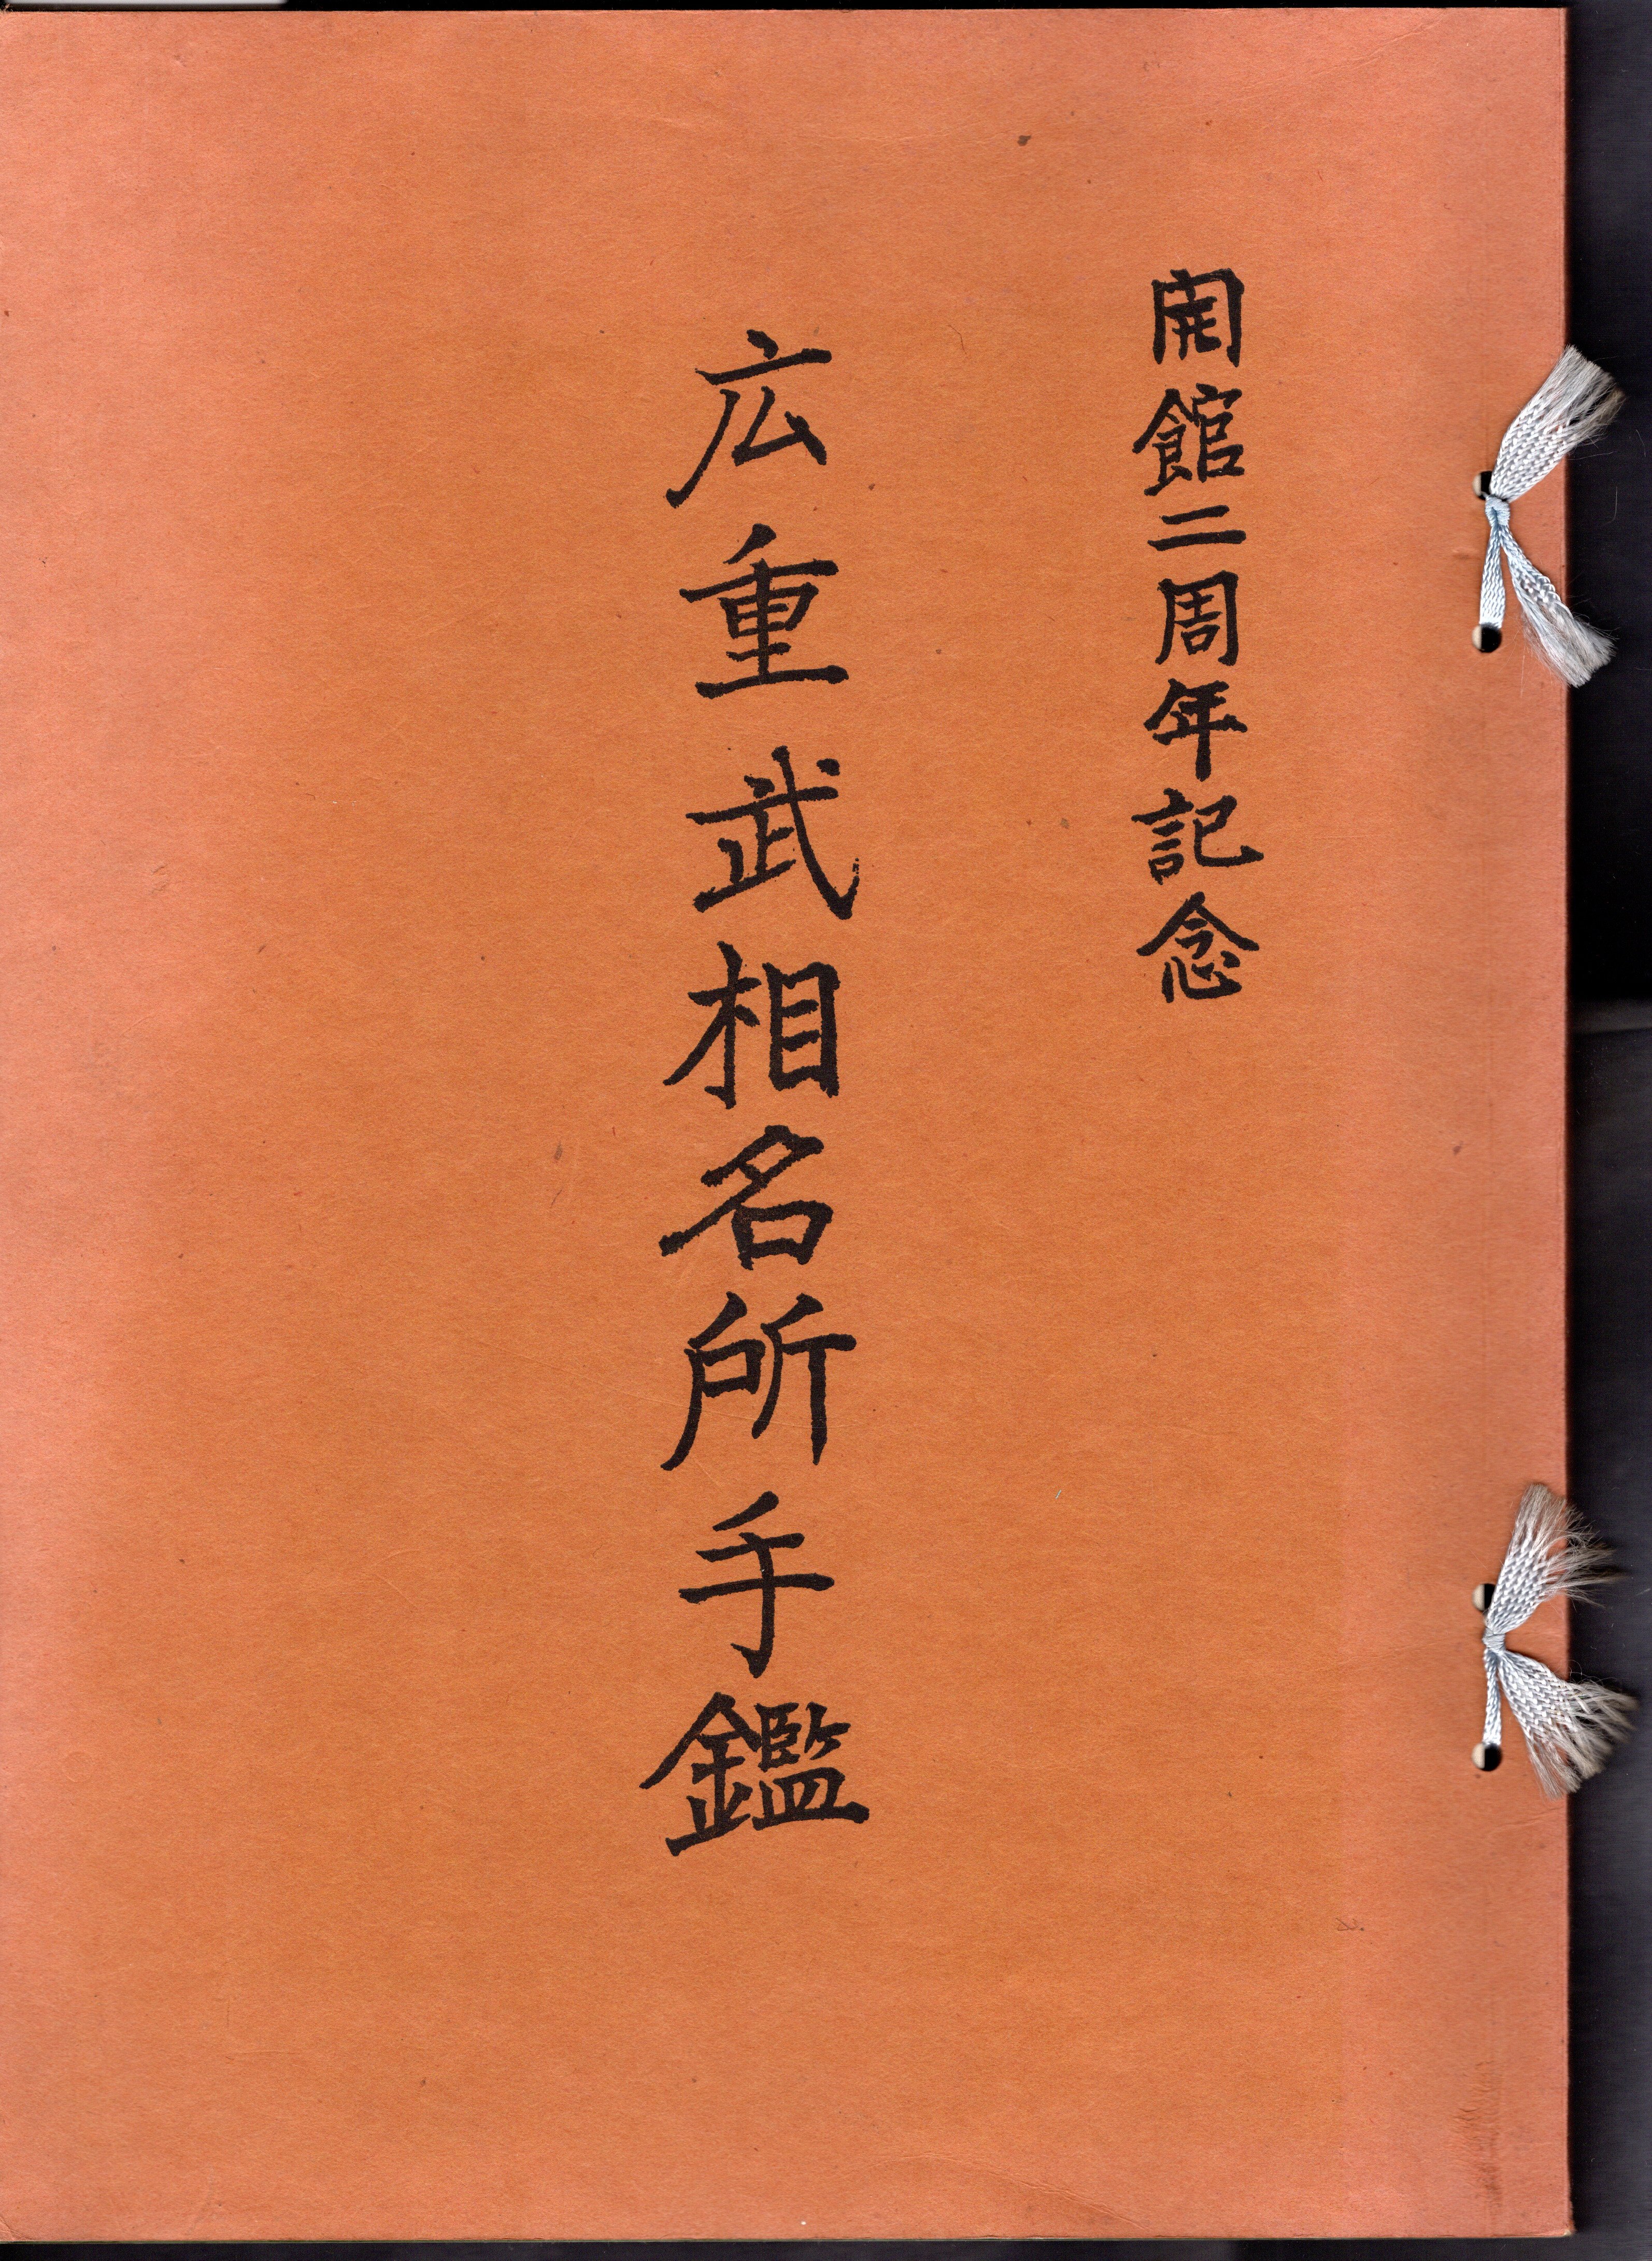 開館二周年記念
広重武相名所手鑑